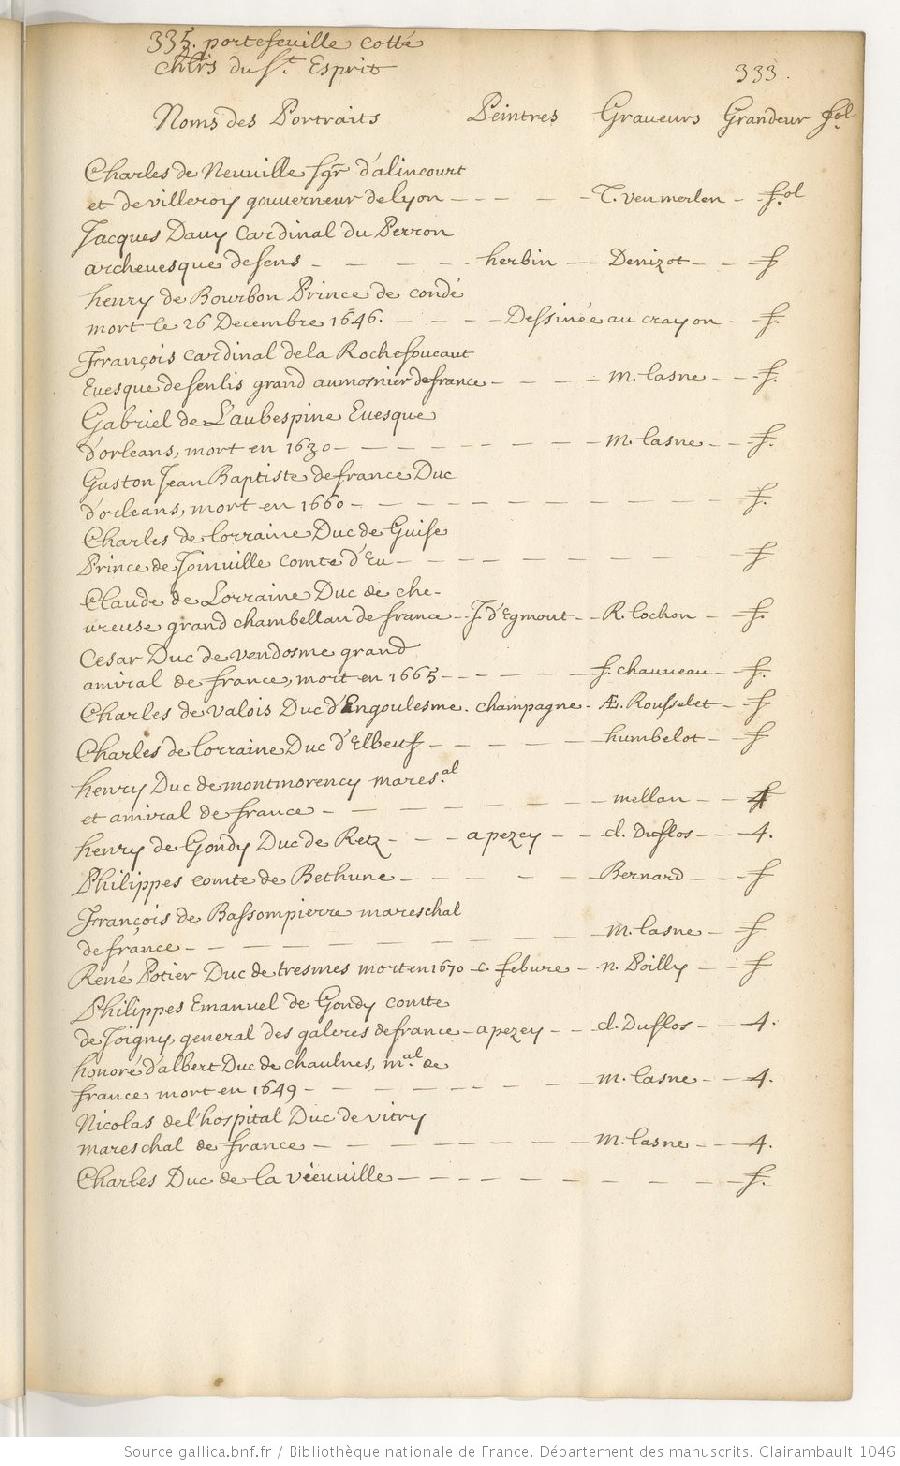 335. portefeuille cotté
chlrs du St. Esprit
333.
Noms des Portraits Peintres Graueurs Grandeur fol.
Charles de Neuuille sgr. d'alincourt
et de villeroy gouuerneur de lyon - - - - T. Veumerlen - f.ol
Jacques Dauy Cardinal du Perron
archeuesque de sens - - - - herbin - Denizot - - f
henry de Bourbon Prince de condé
mort le 26 Decembre 1646. - - - Dessinée au crayon - f.
François Cardinal de la Rochefoucaut
Euesque de senlis grand aumosnier de france - - - - m. lasne - - f.
Gabriel de L'aubespine Euesque
d'orleans, mort en 1630 - - - - - - - m. lasne - - f.
Gaston Jean Baptiste de france Duc
d'orleans, mort en 1660 - - - - - - - - - - f.
Charles de lorraine Duc de Guise
Prince de Joinuille comte d'Eu - - - - - - - - f
Claude de Lorraine Duc de che-
ureuse grand chambellan de france - J. d'Egmont - R. lochon - f.
Cesar Duc de vendosme grand
amiral de france, mort en 1665 - - - - f. chauueau - f.
Charles de valois Duc d'Engoulesme. champagne - Æ. Rousselet - f
Charles de lorraine Duc d'Elbeuf - - - - - humbelot - f
henry Duc de montmorency mares.al
et amiral de france - - - - - - mellan - - 4
henry de Gondy Duc de Retz - - - apezey - - cl. Duflos - - 4.
Philippes comte de Bethune - - - - - Bernard - f
François de Bassompierre mareschal
de france - - - - - - - - m. lasne - f
René Potier Duc de tresmes mort en 1670 - c. febure - n. Poilly - f
Philippes Emanuel de Gondy comte
de Joigny, general des galeres de france - apezey - - cl. Duflos - 4.
honoré d'albert Duc de chaulnes, m.al de
france mort en 1649 - - - - - - m. lasne - - 4.
Nicolas de l'hospital Duc de vitry
mareschal de france - - - - - - m. lasne - - 4.
Charles Duc de la vieuuille - - - - - - - - - f.
Source gallica.bnf.fr / Bibliothèque nationale de France. Département des manuscrits. Clairambault 1046